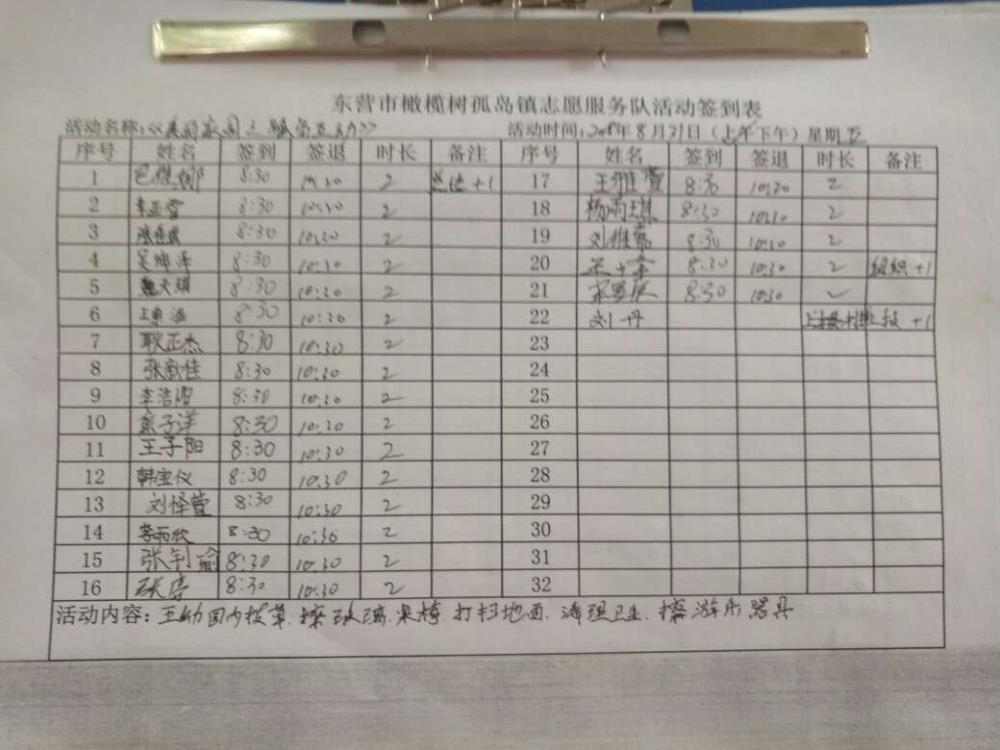 东营市橄榄树孤岛镇志愿服务队活动签到表
活动名称:《美 家园 服务 》 活动时间: 年8月31日(上午下午)星期五
序号 姓名 签到 签退 时长 备注 序号 姓名 签到 签退 时长 备注
1 8:30 10:30 2 +1 17 王雅萱 8:30 10:30 2
2 8:30 10:30 2 18 杨雨琪 8:30 10:30 2
3 8:30 10:30 2 19 刘雅 8:30 10:30 2
4 8:30 10:30 2 20 8:30 10:30 2 组织+1
5 魏天琪 8:30 10:30 2 21 8:30 10:30
6 8:30 10:30 2 22 刘丹 上报+1
7 耿正杰 8:30 10:30 2 23
8 张 佳 8:30 10:30 2 24
9 李浩 8:30 10:30 2 25
10 子洋 8:30 10:30 2 26
11 王子阳 8:30 10:30 2 27
12 韩宝仪 8:30 10:30 2 28
13 刘怿萱 8:30 10:30 2 29
14 李雨欣 8:30 10:30 2 30
15 张钊瑜 8:30 10:30 2 31
16 张 8:30 10:30 2 32
活动内容: 幼园内拔草.擦玻璃.桌椅.打扫地面.清理卫生.擦游乐器具